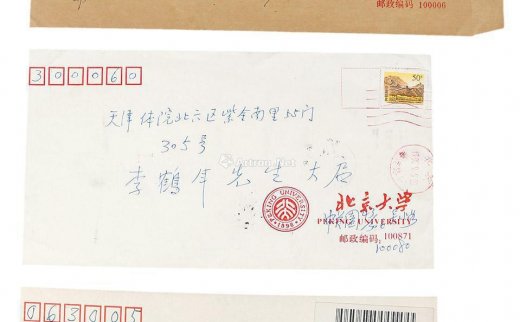 邮政编码 100006
300060
50分
天津体院北六区紫金南里35门
305号
李鹤年先生大启
Artron.Net
PEKING UNIVERSITY
1898
北京大学
PEKING UNIVERSITY
邮政编码:100871
100080
063005